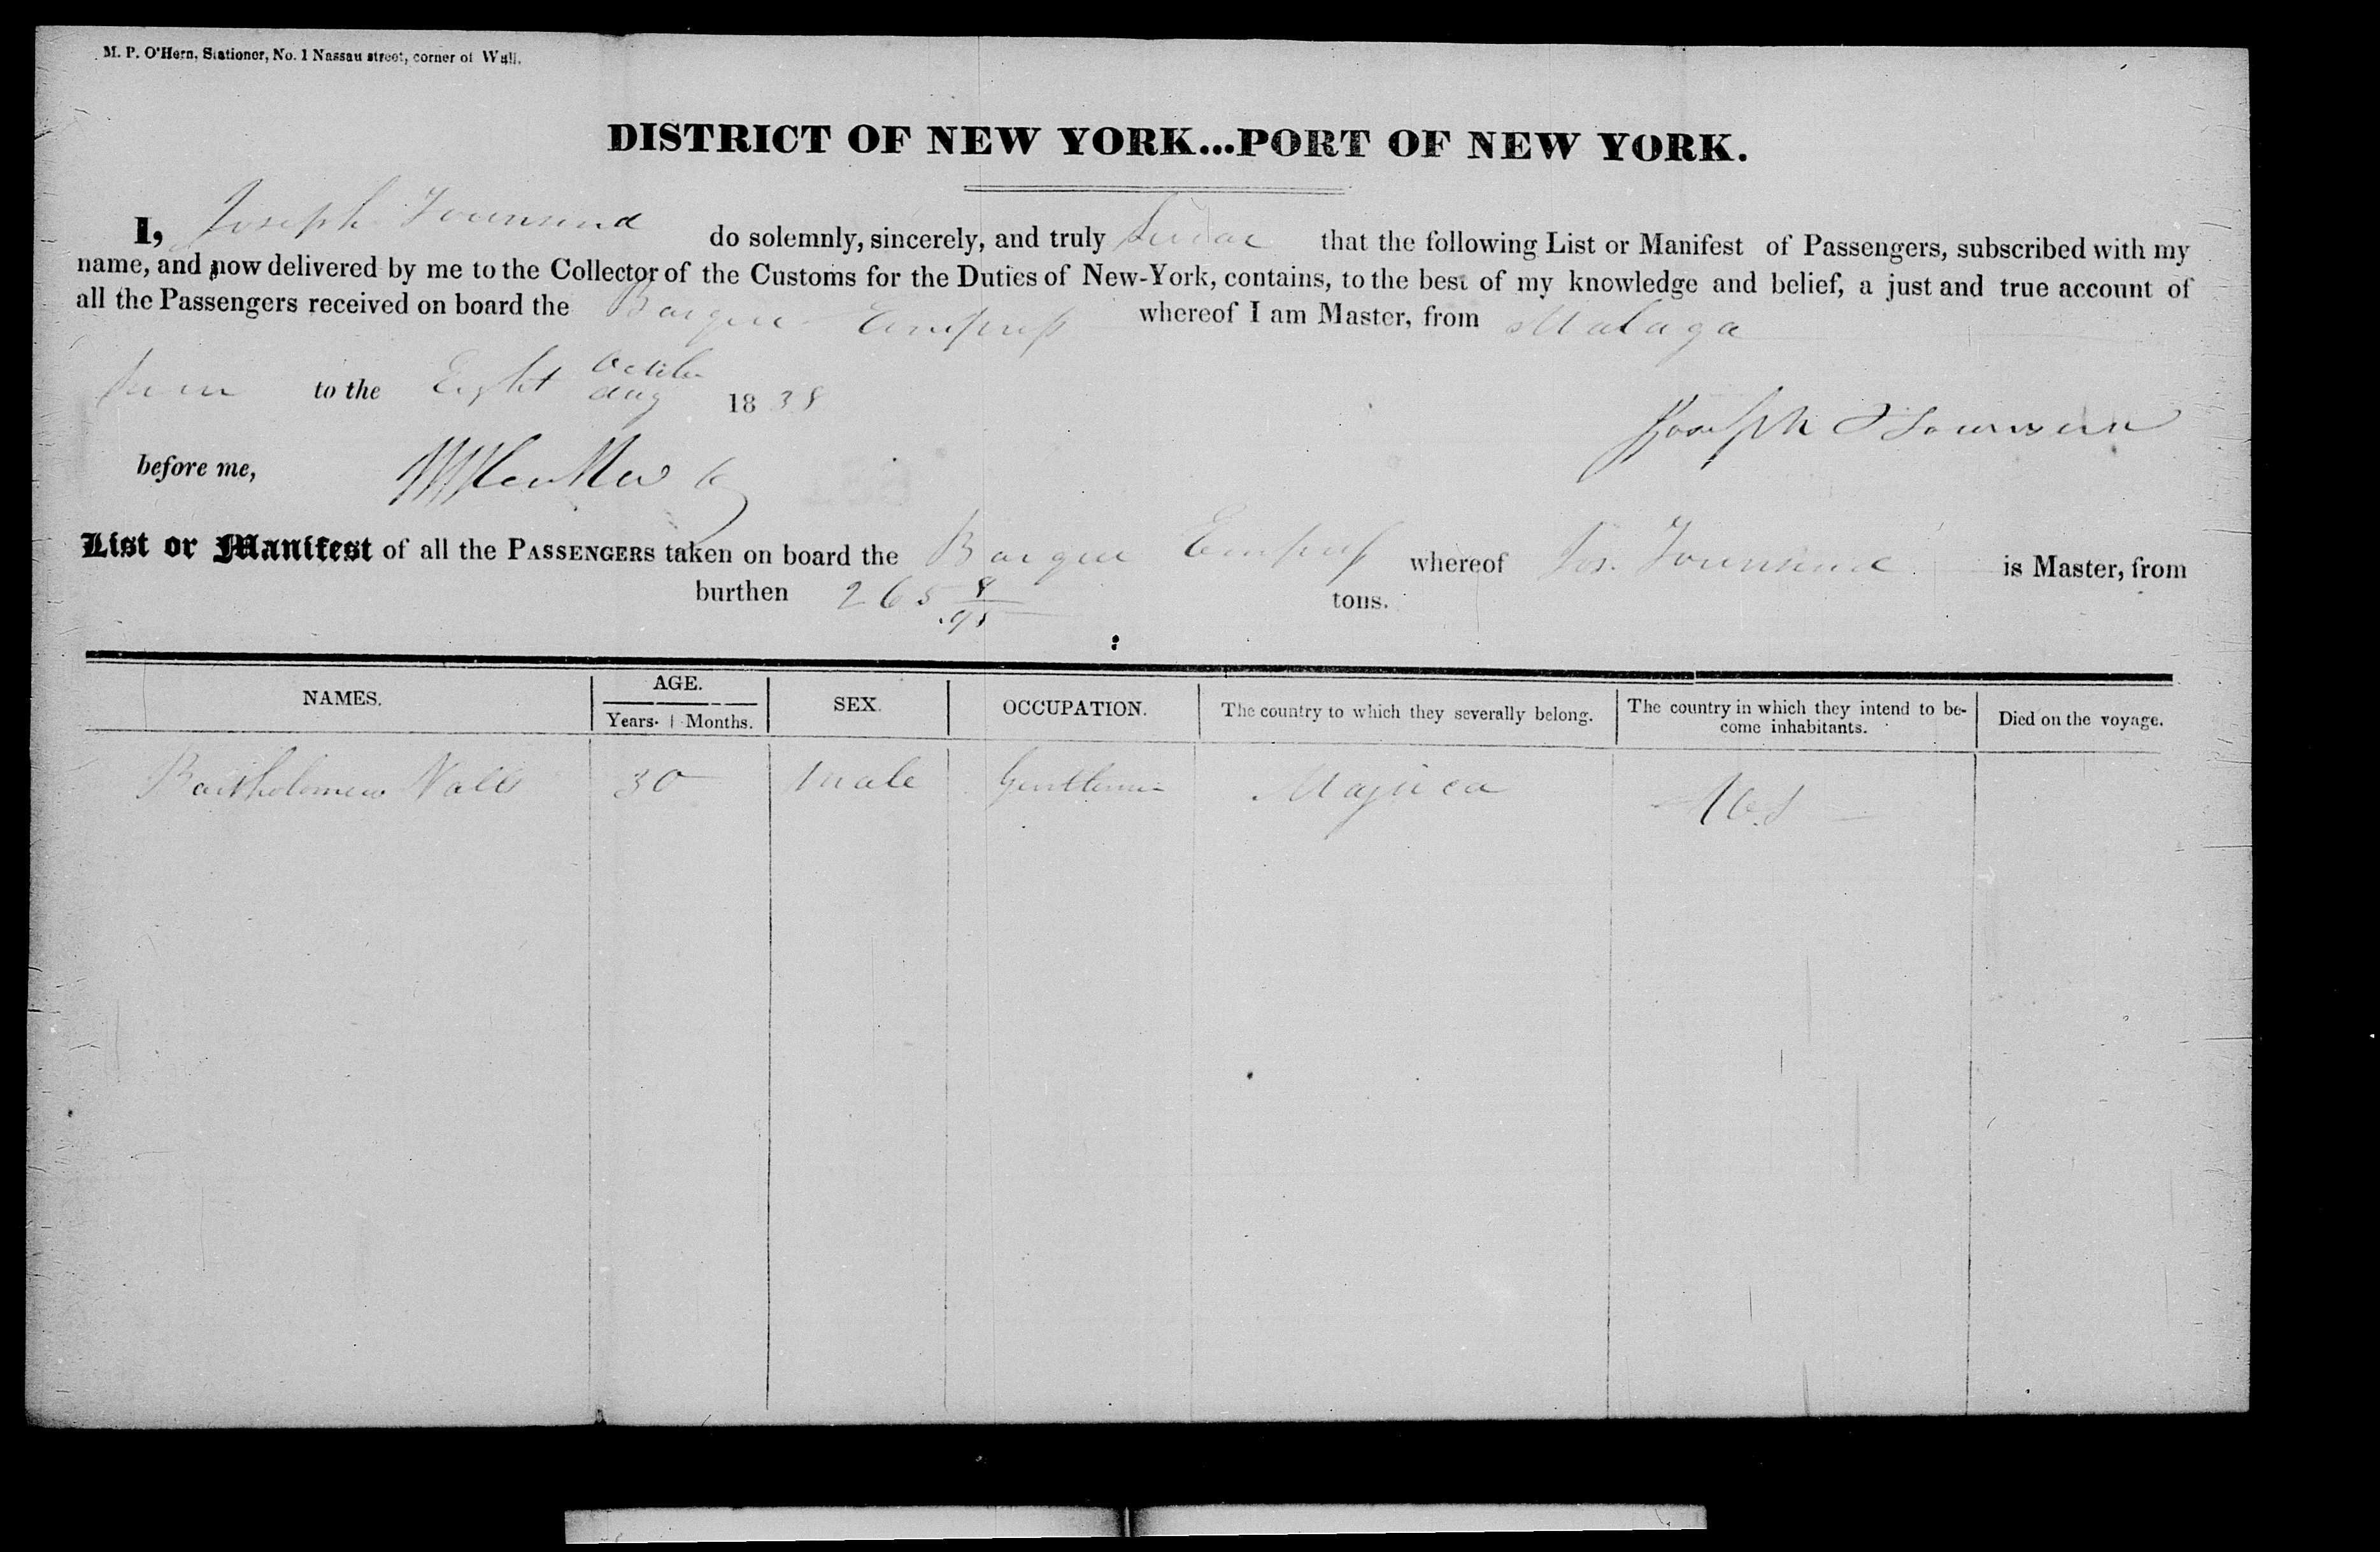 M. P. O'Hern, Stationer, No. 1 Nassau street, corner of Wall.
DISTRICT OF NEW YORK...PORT OF NEW YORK.
I, Joseph Townsend do solemnly, sincerely, and truly Swear that the following List or Manifest of Passengers, subscribed with my
name, and now delivered by me to the Collector of the Customs for the Duties of New-York, contains, to the best of my knowledge and belief, a just and true account of
all the Passengers received on board the Barque Empress whereof I am Master, from Malaga
to the Eight October 1838
Joseph Townsend
before me,
List or Manifest of all the PASSENGERS taken on board the Barque Empress whereof Jos. Townsend is Master, from
burthen 265 8/95 tons.
NAMES. AGE. SEX. OCCUPATION. The country to which they severally belong. The country in which they intend to be- Died on the voyage.
Years. Months. come inhabitants.
Bartholomew Valls 30 Male Gentleman Majorca U.S